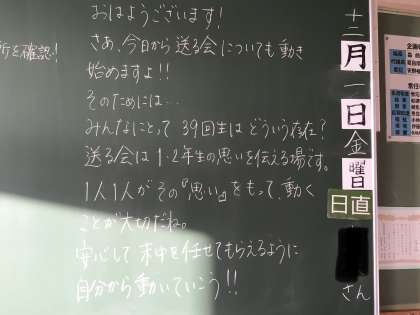 おはようございます!
さあ、今日から送る会についても動き
始めますよ!!
そのためには…
みんなにとって39回生はどういう存在?
送る会は1・2年生の思いを伝える場です。
1人1人がその『思い』をもって、動く
ことが大切だね。
安心して本中を任せてもらえるように
自分から動いていこう!!
所を確認!
十二月一日金曜日
日直
さん